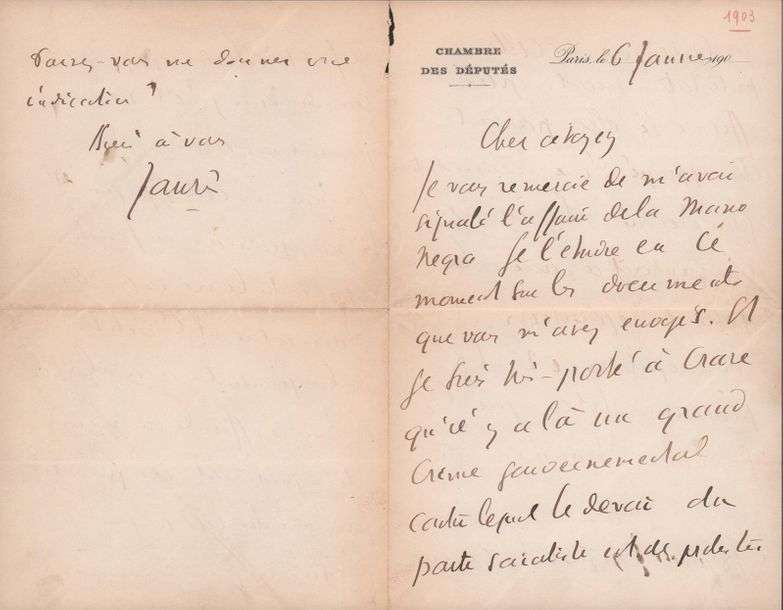 1903
CHAMBRE
DES DÉPUTÉS
Paris, le 6 Janvier 190
Cher citoyen
Je vous remercie de m'avoir
signalé l'affaire de la Mano
Negra Je l'étudie en ce
moment sur les documents
que vous m'avez envoyés. Et
je suis très-porté à croire
qu'il y a là un grand
crime gouvernemental
contre lequel le devoir du
parti socialiste est de protester
Pouvez-vous me donner une
indication ?
Bien à vous
Jaurès